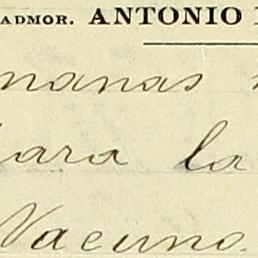 ADMOR. ANTONIO
manas
para la
Vacuno.